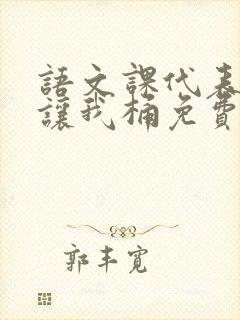 語文課代表
讓我桶免費
郭丰寬